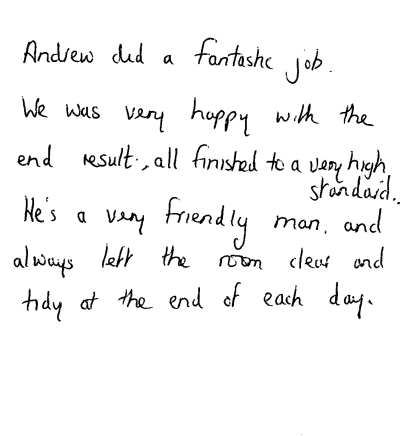 Andrew did a fantastic job.
We was very happy with the
end result., all finished to a very high
standard..
He's a very friendly man, and
always left the room clear and
tidy at the end of each day.